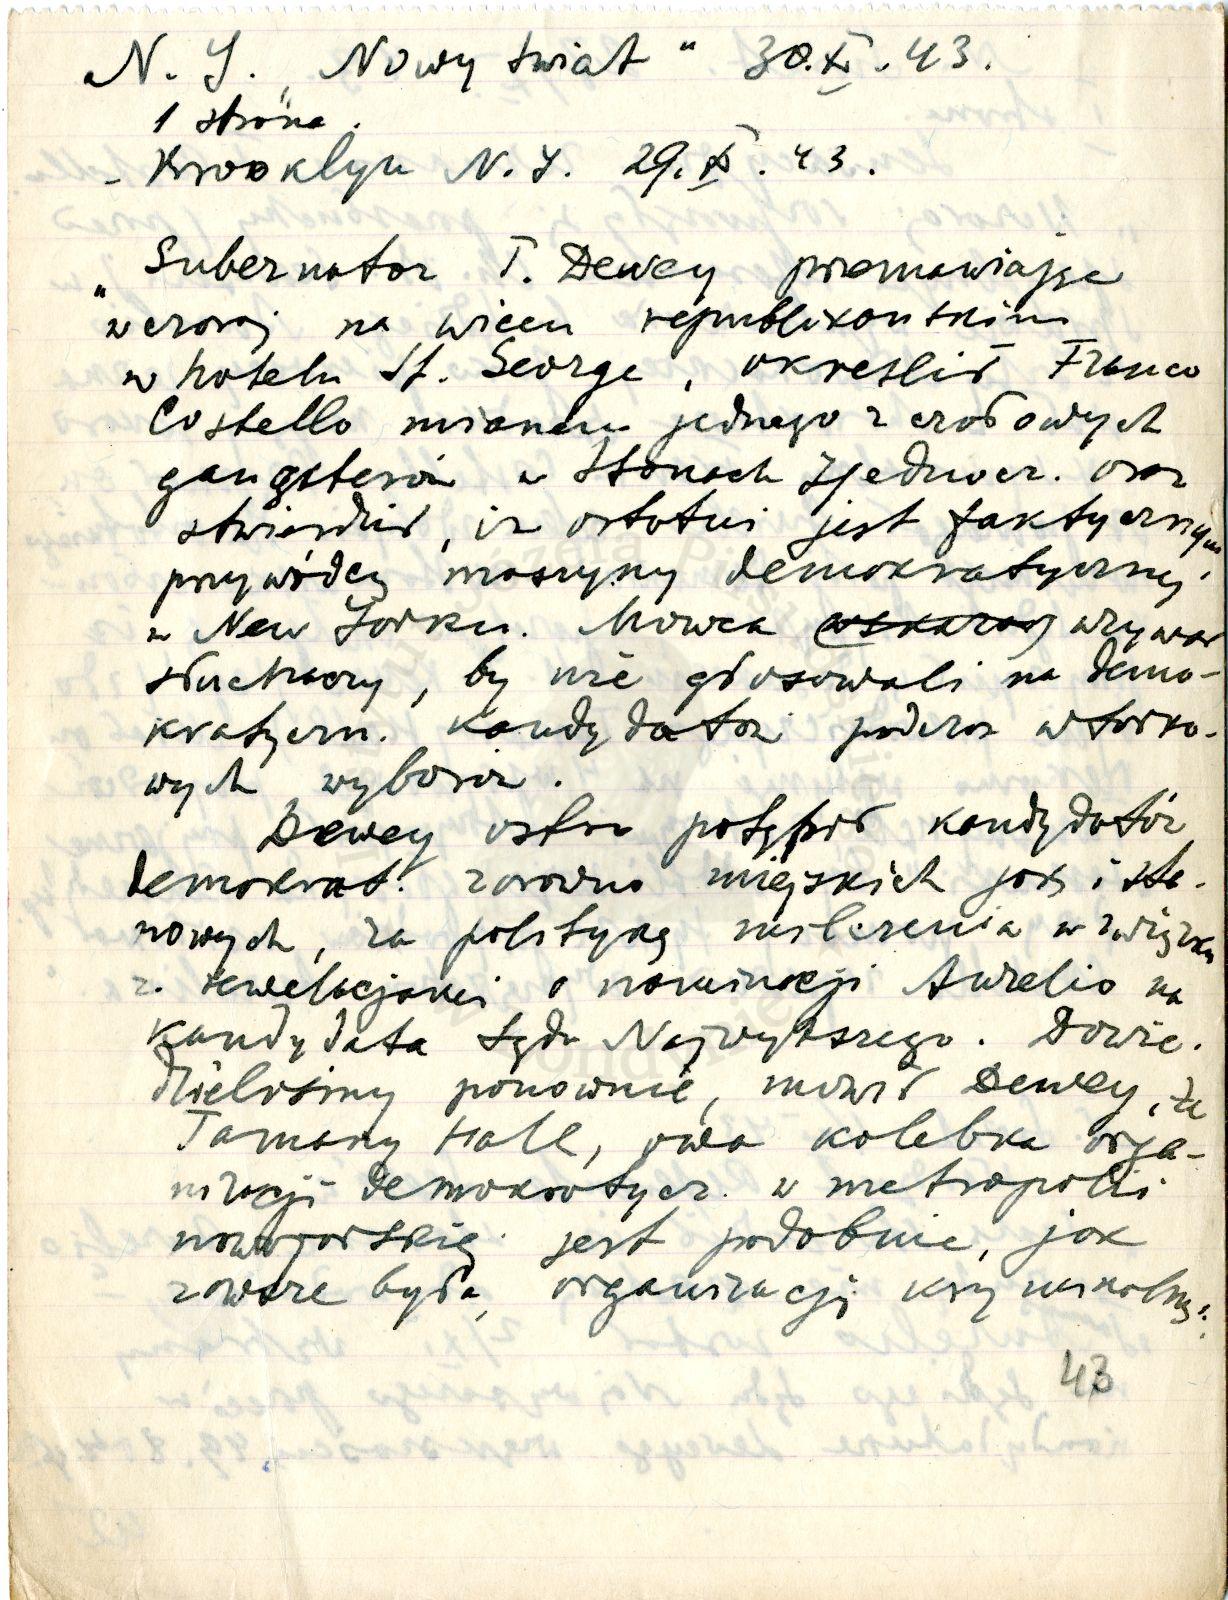 N. Y. „Nowy świat" 30.X.43.
1 strona.
- Brooklyn N.Y. 29.X.43.
„Gubernator T. Dewey przemawiając
wczoraj na wiecu republikańskim
w hotelu St. George, określił Franco
Costello mianem jednego z czołowych
gangsterów w Stanach Zjednocz. oraz
stwierdził, iż ostatni jest faktycznym
przywódcą maszyny demokratycznej
w New Yorku. Mowca wskazaw wzywał
słuchaczy, by nie głosowali na demo-
kratyczn. kandydatów podczas wtorko-
wych wyborów.
Dewey ostro potępił kandydatów
demokrat. zarowno miejskich jak i sta-
nowych, za politykę milczenia w związku
z rewelacjami o nominacji Aurelio na
kandydata Sądu Najwyższego. Dowie-
dzieliśmy ponownie, mówił Dewey, że
Tamany Hall, owa kolebka orga-
nizacji demokratycz. w metropolii
nowojorskiej jest podobnie, jak
zawsze była, organizacją kryminalną.
43